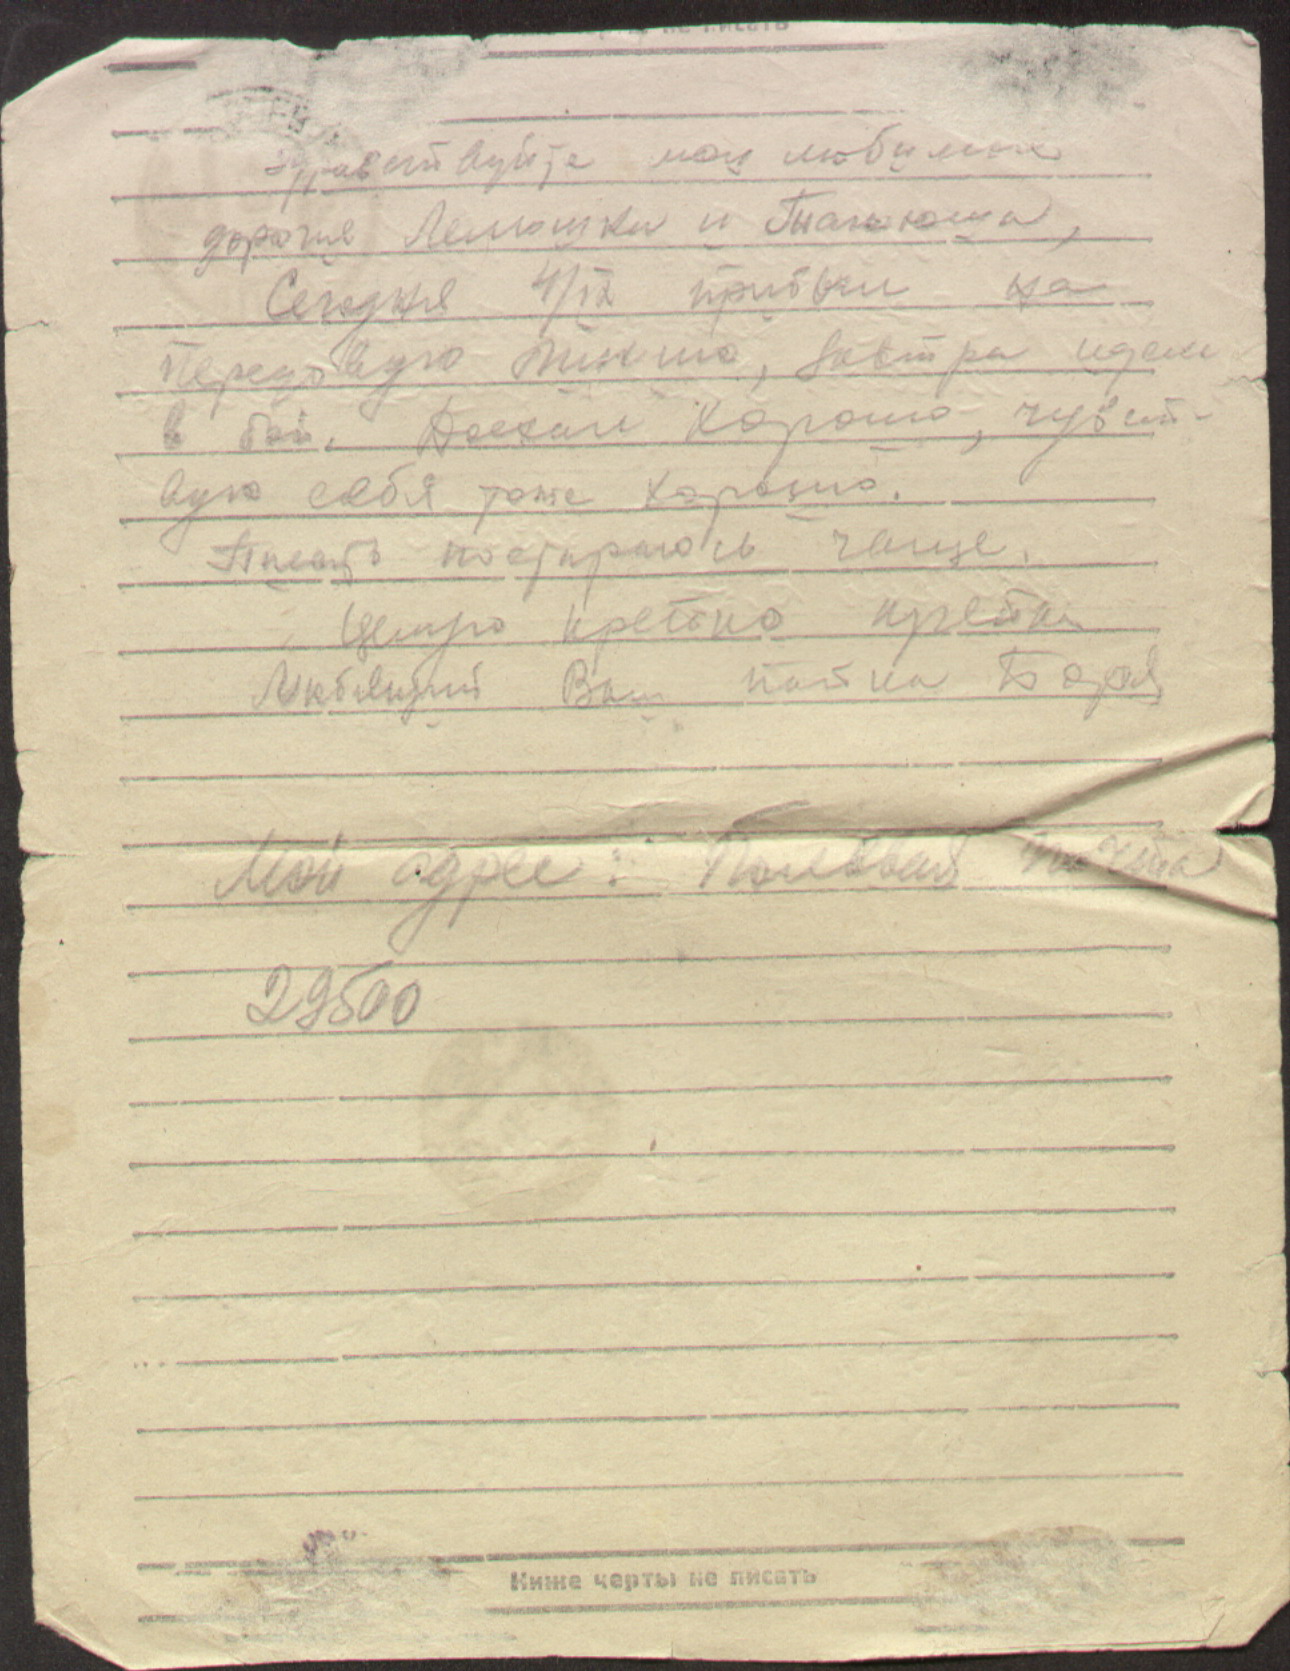 не писать
Здравствуйте мои любимые
дорогие Лелюшка и Танююша,
Сегодня 4/IX прибыли на
передовую линию, завтра идем
в бой. Доехал хорошо, чувст-
вую себя тоже хорошо.
Писать постараюсь чаще.
Целую крепко крепко
Любящий Ваш папка Боря
Мой адрес: Полевая почта
29500
Ниже черты не писать